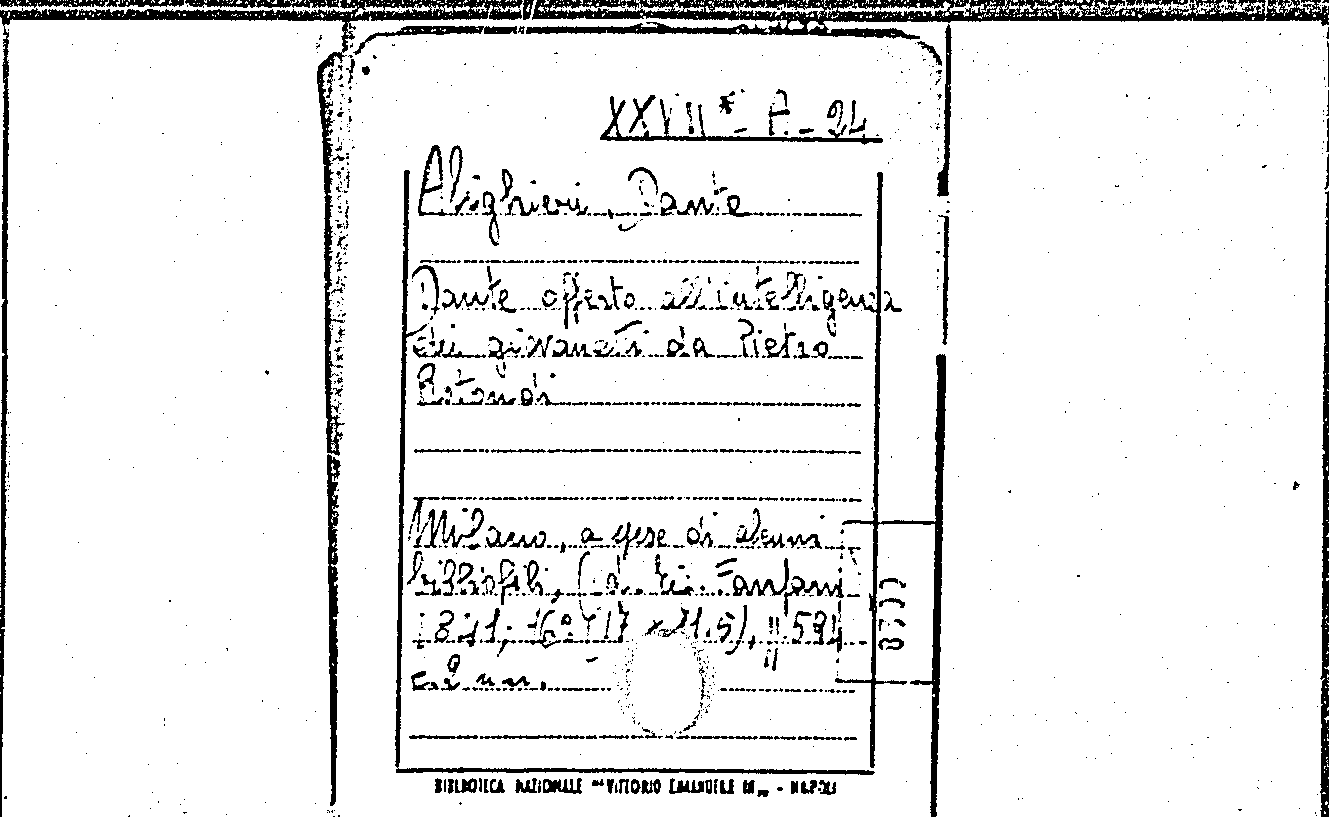 XXVII* - A - 24
Alighieri, Dante
Dante offerto all'intelligenza
dei giovanetti da Pietro
Rotondi
Milano, a spese di alcuni
bibliofili, (id. Er. Fanfani
1841; 16° (17 x 11.5), pp 594
c.2 nn.
BIBLIOTECA NAZIONALE "VITTORIO EMANUELE III" - NAPOLI